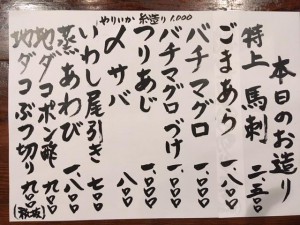 やりいか 糸造り 1,000
本日のお造り
特上 馬刺 二、五〇〇
ごまあり 一、八〇〇
バチマグロ 一、〇〇〇
バチマグロづけ 一、〇〇〇
つりあじ 一、〇〇〇
〆サバ 八〇〇
いわし尾引き 七〇〇
蒸あわび 一、八〇〇
地ダコポン酢 九〇〇
地ダコぶつ切り 九〇〇